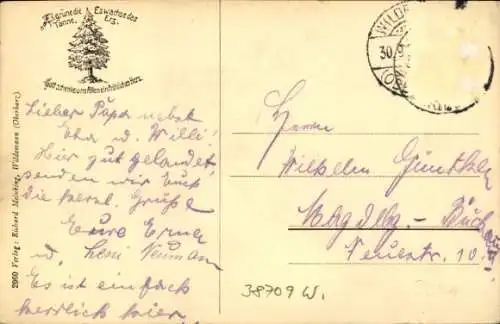 Es grüne die Tanne, Es wachse das Erz.
Gott schenke uns Allen ein fröhliches Herz.
Lieber Papa nebst
u. Willi!
Hier gut gelandet,
senden wir Euch
die herzl. Grüße
Eure Erna
u. Leni Neumann
Es ist einfach
herrlich hier.
2960 Verlag: Richard Wildemann (Oberharz)
WILDE
30.9.
Herrn
Wilhelm Günther
Magdebg. - Buckau
Feuerstr. 10
38709 W.